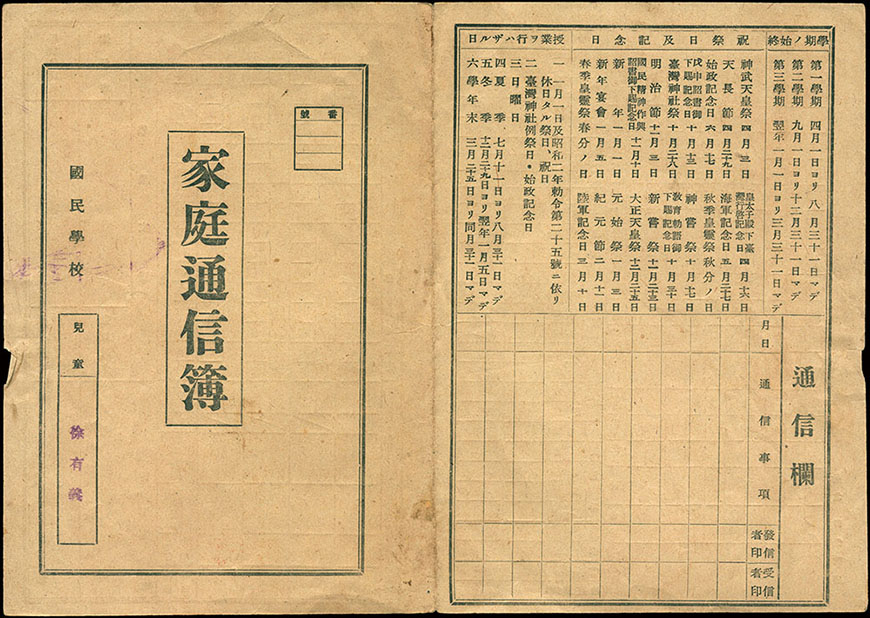 番號
家庭通信簿
國民學校
兒童
徐有義
學期ノ始終
第一學期 四月一日ヨリ 八月三十一日マデ
第二學期 九月一日ヨリ十二月三十一日マデ
第三學期 翌年一月一日ヨリ三月三十一日マデ
祝祭日及記念日
神武天皇祭 四月三日
皇太子殿下臺灣行啓記念日 四月十六日
天長節 四月二十九日
海軍記念日 五月二十七日
始政記念日 六月十七日
秋季皇靈祭 秋分ノ日
戊申詔書御下賜記念日 十月十三日
神嘗祭 十月十七日
臺灣神社祭 十月二十八日
教育勅語御下賜記念日 十月三十日
明治節 十一月三日
新嘗祭 十一月二十三日
國民精神作興詔書御下賜記念日 十一月十日
大正天皇祭 十二月二十五日
新年 一月一日
元始祭 一月三日
新年宴會 一月五日
紀元節 二月十一日
春季皇靈祭 春分ノ日
陸軍記念日 三月十日
授業ヲ行ハザル日
一 一月一日及昭和二年勅令第二十五號ニ依リ
休日タル祭日、祝日
二 臺灣神社例祭日・始政記念日
三 日曜日
四 夏季 七月十一日ヨリ八月三十一日マデ
五 冬季 十二月二十九日ヨリ翌年一月五日マデ
六 學年末 三月二十五日ヨリ同月三十一日マデ
通信欄
月日
通信事項
發信者印
受信者印